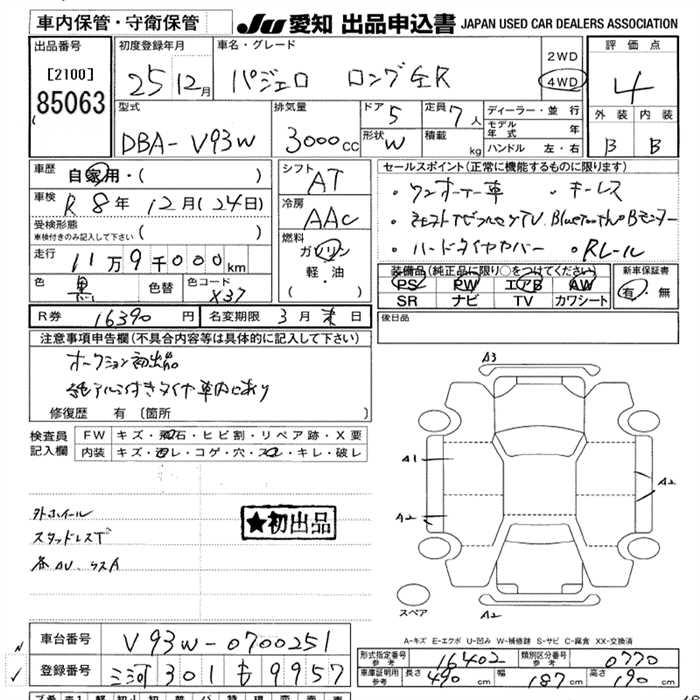 車内保管・守衛保管
JU 愛知 出品申込書 JAPAN USED CAR DEALERS ASSOCIATION
出品番号
[2100]
85063
初度登録年月
25 12月
車名・グレード
パジェロ ロング ZR
2WD
4WD
評価点
4
外装 内装
B B
型式
DBA-V93W
排気量
3000cc
ドア 5
形状 W
定員 7人
積載 kg
ディーラー・並行
モデル年式 年
ハンドル 左・右
車歴 自家用・( )
車検 R8年 12月(24日)
受検形態
車検付きのみ記入して下さい ( )
走行 11万9千000km
色 黒 色替 色コード X37
シフト AT
冷房 AAC
燃料
ガソリン
軽・油
( ・ )
セールスポイント(正常に機能するものに限ります)
・ワンオーナー車 ・キーレス
Bluetooth
・ハードタイヤカバー ・Rレール
装備品(純正品に限り○をつけてください)
PS PW エアB AW
SR ナビ TV カワシート
新車保証書
有・無
後日品
R券 16390円 名変期限 3月末日
注意事項申告欄(不具合内容等は具体的に記入して下さい)
オークション初出品
純アルミ付きタイヤ車内にあり
修復歴 有 〔箇所 〕
検査員記入欄
FW キズ・飛石・ヒビ割・リペア跡・X要
内装 キズ・汚レ・コゲ・穴・スレ・キレ・破レ
外ホイール
スタッドレスT
★初出品
A3
A1
A2
A2
A2
スペア
A-キズ E-エクボ U-凹み W-補修跡 S-サビ C-腐食 XX-交換済
車台番号 V93W-0700251
登録番号 三河 301 も 9957
形式指定番号 参考 16402 類別区分番号 参考 0770
車庫証明用 参考 長さ 490cm 幅 187cm 高さ 190cm